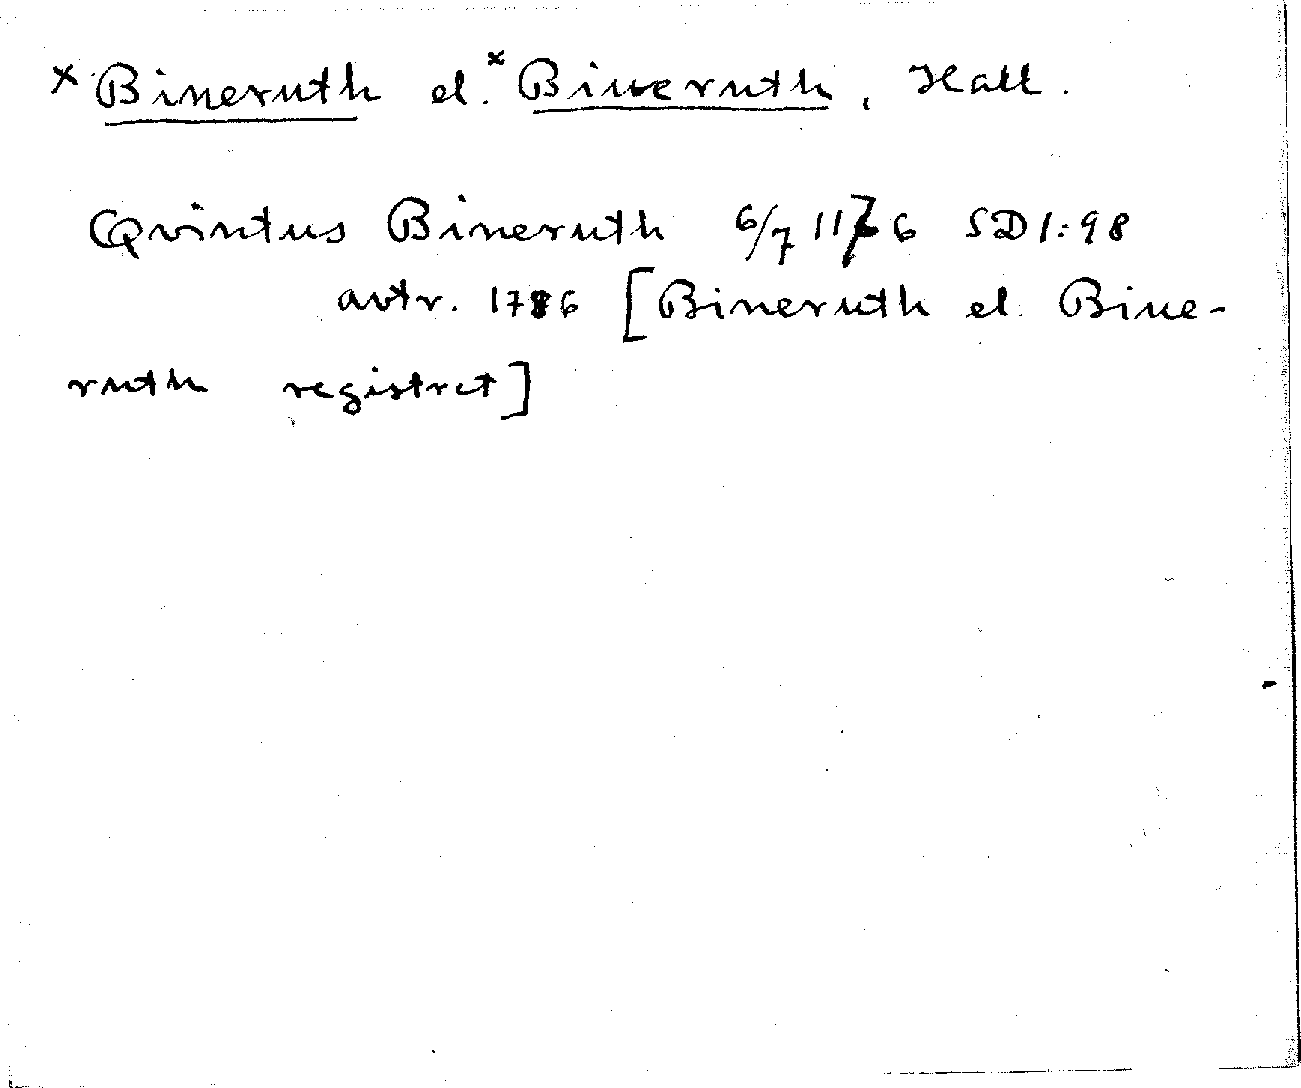 ×Bineruth el. ×Biueruth, Hall.
Qvintus Bineruth 6/7 1176 SD 1:98
avtr. 1786 [Bineruth el. Biue-
ruth registret]